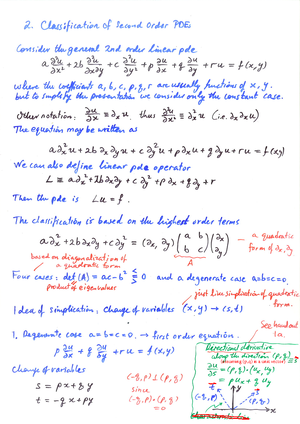 2. Classification of Second Order PDEs
Consider the general 2nd order linear pde
a ∂²u/∂x² + 2b ∂²u/∂x∂y + c ∂²u/∂y² + p ∂u/∂x + q ∂u/∂y + ru = f(x,y)
where the coefficients a, b, c, p, q, r are usually functions of x, y.
but to simplify the presentation we consider only the constant case.
Other notation: ∂u/∂x ≡ ∂ₓu, thus ∂²u/∂x² ≡ ∂ₓ²u (i.e. ∂ₓ∂ₓu)
The equation may be written as
a∂ₓ²u + 2b∂ₓ∂ᵧu + c∂ᵧ²u + p∂ₓu + q∂ᵧu + ru = f(x,y)
We can also define linear pde operator
L ≡ a∂ₓ² + 2b∂ₓ∂ᵧ + c∂ᵧ² + p∂ₓ + q∂ᵧ + r
Then the pde is Lu = f.
The classification is based on the highest order terms
a∂ₓ² + 2b∂ₓ∂ᵧ + c∂ᵧ² = (∂ₓ, ∂ᵧ) (a b; b c) (∂ₓ; ∂ᵧ) — a quadratic form of ∂ₓ, ∂ᵧ
A
based on diagonalization of
a quadratic form
Four cases: det(A) = ac - b² ⋚ 0 and a degenerate case a=b=c=0.
product of eigenvalues
just like simplification of quadratic form.
Idea of simplification, Change of variables (x,y) → (s,t)
See handout 1a.
1, Degenerate case a=b=c=0. → first order equation.
p ∂u/∂x + q ∂u/∂y + ru = f(x,y)
Change of variables
s = px + qy
t = -qx + py
(-q,p) ⊥ (p,q)
since
(-q,p)·(p,q)
= 0
Directional derivative
along the direction (p,q)
∂u/∂s = (p,q)·(uₓ, uᵧ)
= puₓ + quᵧ
(-q,p)
(p,q)
t
s
y
x